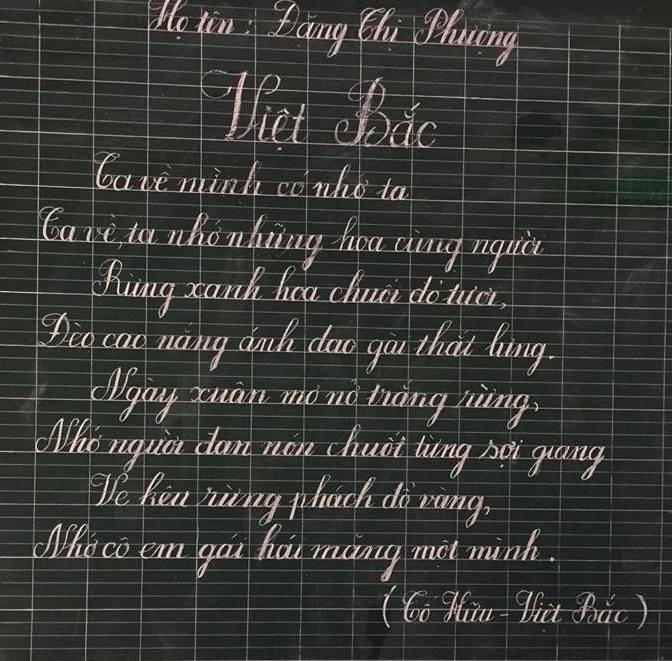 Họ tên: Đặng Thị Phượng
Việt Bắc
Ta về mình có nhớ ta
Ta về, ta nhớ những hoa cùng người
Rừng xanh hoa chuối đỏ tươi,
Đèo cao nắng ánh dao gài thắt lưng.
Ngày xuân mơ nở trắng rừng,
Nhớ người đan nón chuốt từng sợi giang
Ve kêu rừng phách đổ vàng,
Nhớ cô em gái hái măng một mình.
(Tố Hữu - Việt Bắc)